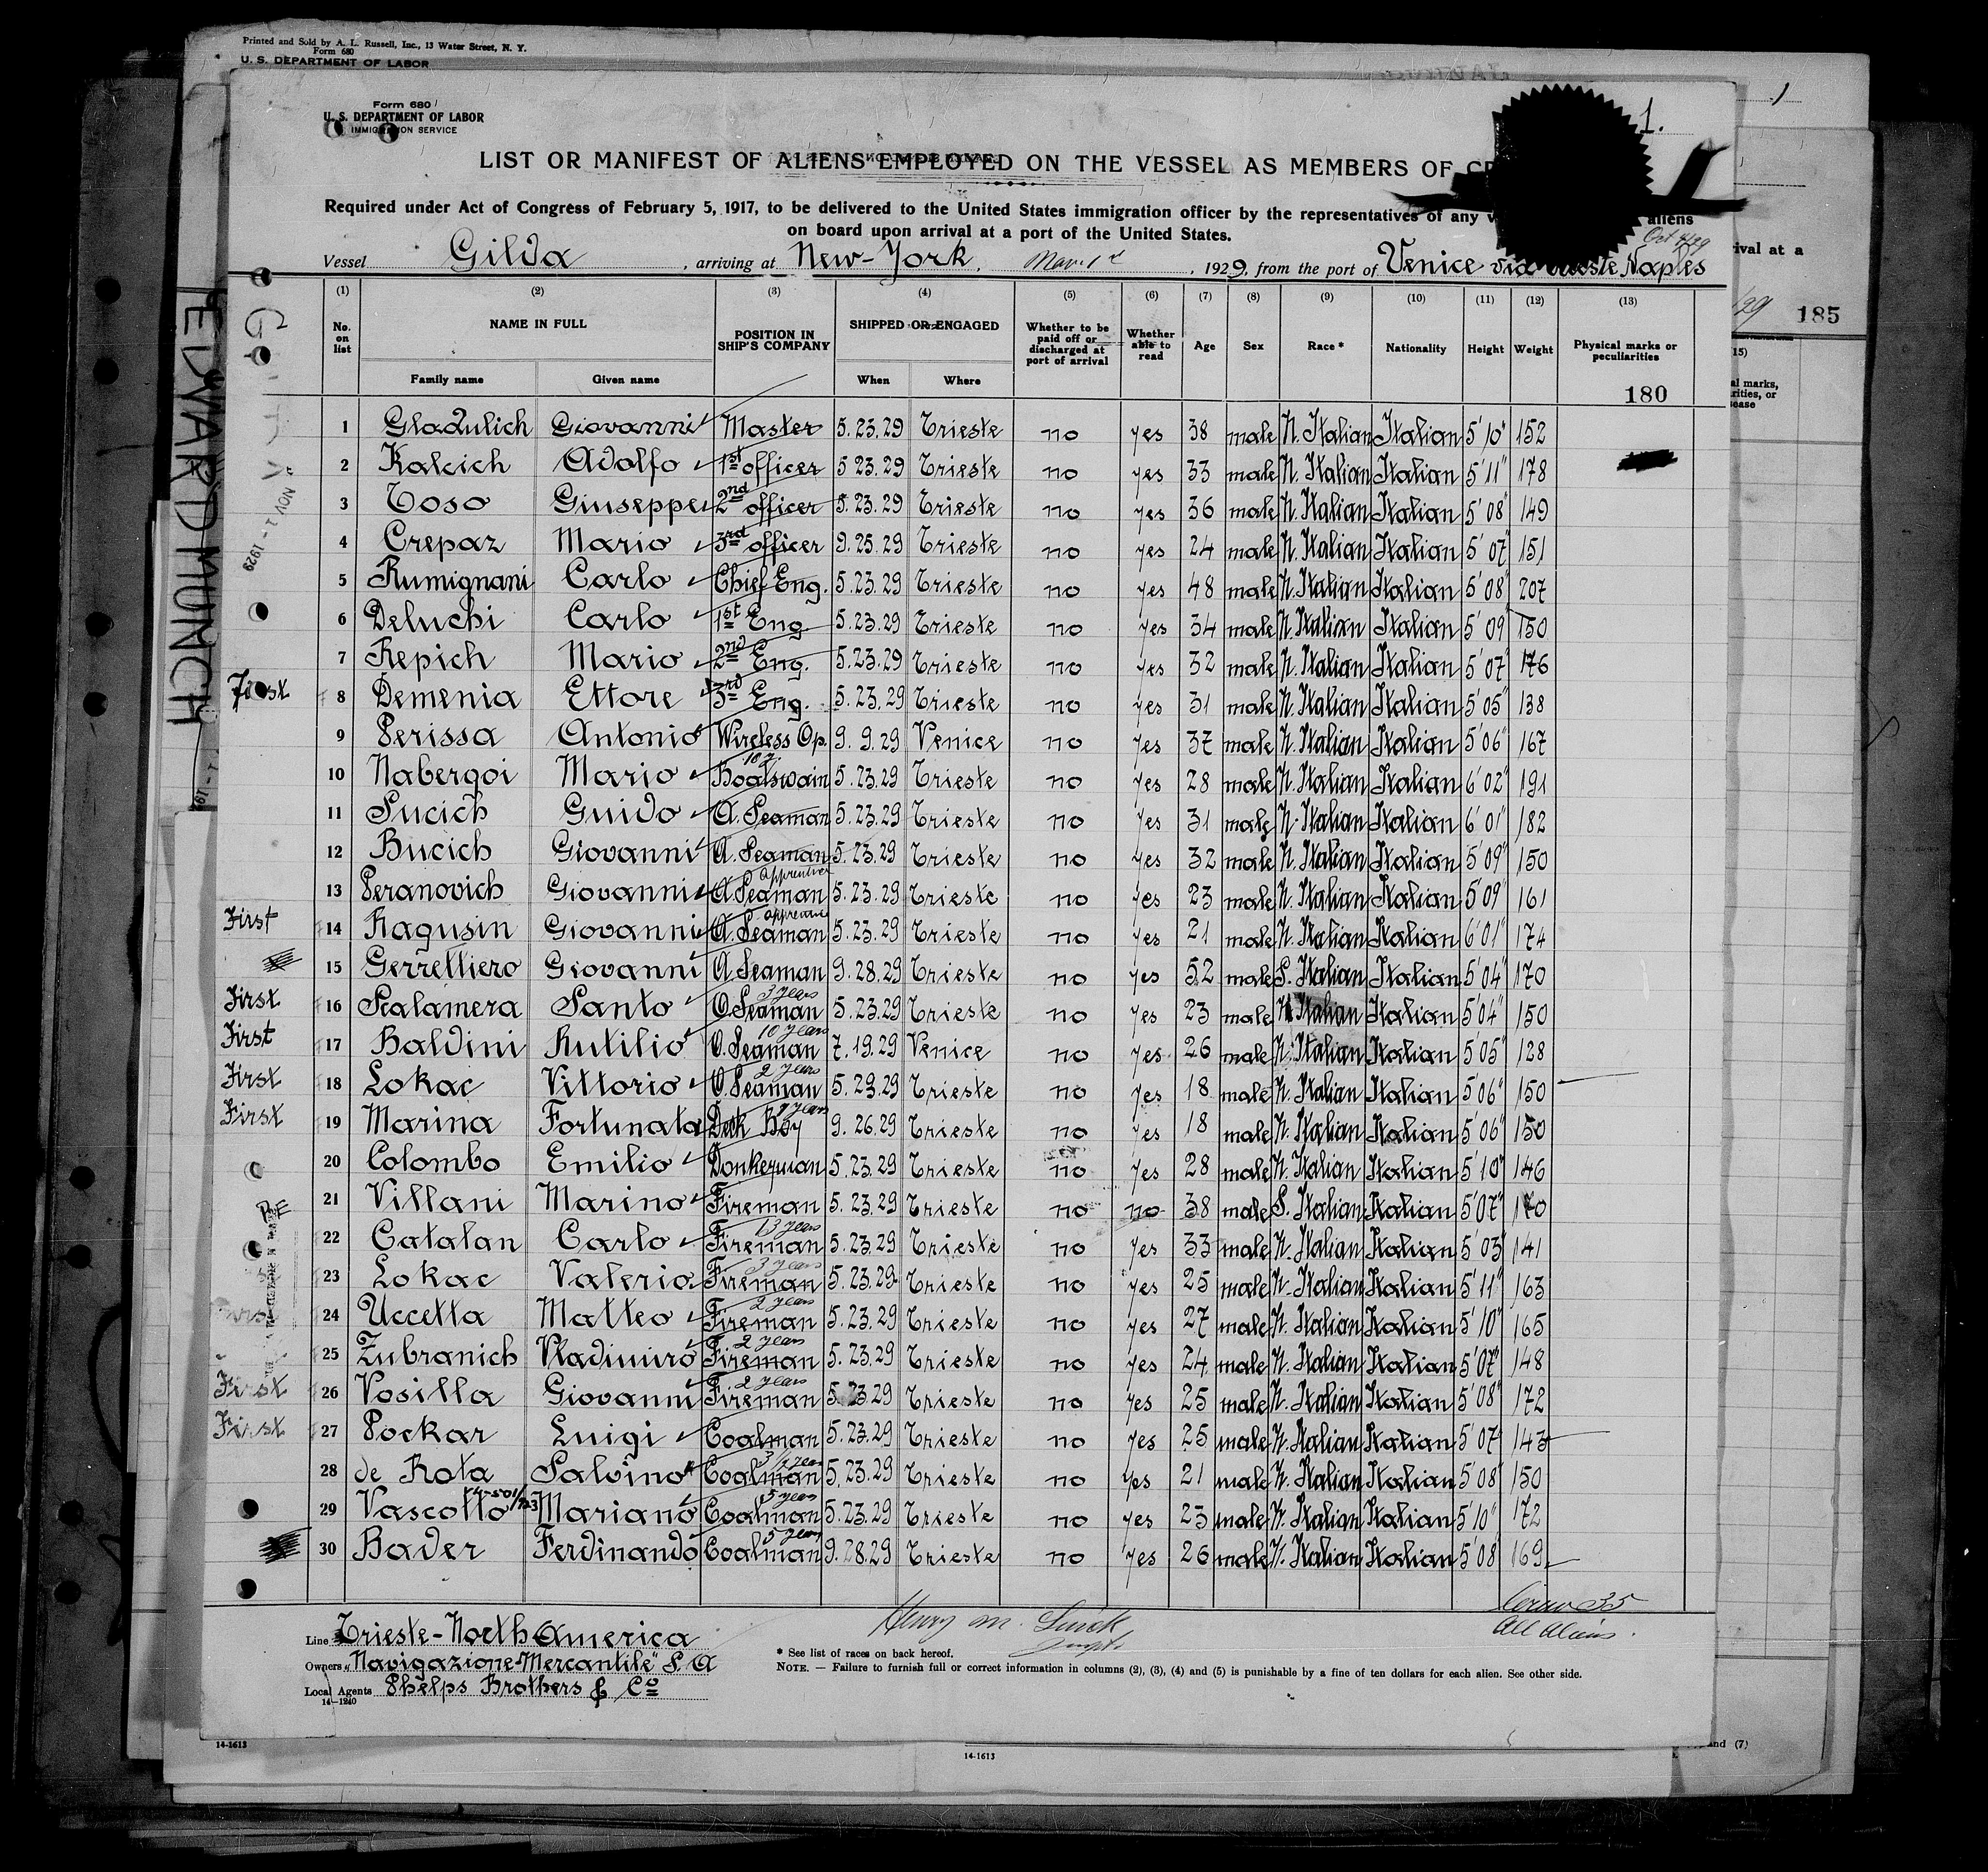 Printed and Sold by A. L. Russell, Inc., 13 Water Street, N. Y.
Form 680
U. S. DEPARTMENT OF LABOR
Form 680
U. S. DEPARTMENT OF LABOR
IMMIGRATION SERVICE
1.
LIST OR MANIFEST OF ALIENS EMPLOYED ON THE VESSEL AS MEMBERS OF
Required under Act of Congress of February 5, 1917, to be delivered to the United States immigration officer by the representatives of any aliens
on board upon arrival at a port of the United States.
Vessel Gilda, arriving at New-York, 1929, from the port of Venice via Trieste Naples
(1) (2) (3) (4) (5) (6) (7) (8) (9) (10) (11) (12) (13)
No. on list NAME IN FULL POSITION IN SHIP'S COMPANY SHIPPED OR ENGAGED Whether to be paid off or discharged at port of arrival Whether able to read Age Sex Race * Nationality Height Weight Physical marks or peculiarities
Family name Given name When Where
180
185
EDWARD MUNCH
NOV 1 - 1929
1 Gladulich Giovanni Master 5.23.29 Trieste no yes 38 male N. Italian Italian 5'10" 152
2 Kalcich Adolfo 1st officer 5 23.29 Trieste no yes 33 male N. Italian Italian 5'11" 178
3 Toso Giuseppe 2nd officer 5.23.29 Trieste no yes 36 male N. Italian Italian 5'08" 149
4 Crepaz Mario 3rd officer 9.25.29 Trieste no yes 24 male N. Italian Italian 5'07" 151
5 Rumignani Carlo Chief Eng. 5.23.29 Trieste no yes 48 male N. Italian Italian 5'08" 207
6 Deluchi Carlo 1st Eng 5.23.29 Trieste no yes 34 male N. Italian Italian 5'09" 150
7 Repich Mario 2nd Eng. 5.23.29 Trieste no yes 32 male N. Italian Italian 5'07" 176
First 8 Demenia Ettore 3rd Eng. 5.23.29 Trieste no yes 31 male N. Italian Italian 5'05" 138
9 Perissa Antonio Wireless Op. 9.9.29 Venice no yes 37 male N. Italian Italian 5'06" 167
10 Nabergoi Mario Boatswain 5.23.29 Trieste no yes 28 male N. Italian Italian 6'02" 191
11 Pucich Guido A. Seaman 5.23.29 Trieste no yes 31 male N. Italian Italian 6'01" 182
12 Bucich Giovanni A. Seaman 5.23.29 Trieste no yes 32 male N. Italian Italian 5'09" 150
13 Peranovich Giovanni A. Seaman 5.23.29 Trieste no yes 23 male N. Italian Italian 5'09" 161
First 14 Ragusin Giovanni A. Seaman 5.23.29 Trieste no yes 21 male N. Italian Italian 6'01" 174
15 Gerrettiero Giovanni A. Seaman 9.28.29 Trieste no yes 52 male S. Italian Italian 5'04" 170
First 16 Scalamera Santo O. Seaman 3 years 5.23.29 Trieste no yes 23 male N. Italian Italian 5'04" 150
First 17 Baldini Rutilio O. Seaman 10 years 7.19.29 Venice no yes 26 male N. Italian Italian 5'05" 128
First 18 Lokac Vittorio O. Seaman 2 years 5.23.29 Trieste no yes 18 male N. Italian Italian 5'06" 150
First 19 Marina Fortunato Deck Boy 9.26.29 Trieste no yes 18 male N. Italian Italian 5'06" 150
20 Colombo Emilio Donkeyman 5.23.29 Trieste no yes 28 male N. Italian Italian 5'10" 146
21 Villani Marino Fireman 5.23.29 Trieste no no 38 male S. Italian Italian 5'07" 170
22 Catalan Carlo Fireman 13 years 5.23.29 Trieste no yes 33 male N. Italian Italian 5'03" 141
23 Lokac Valerio Fireman 3 years 5.23.29 Trieste no yes 25 male N. Italian Italian 5'11" 163
24 Uccetta Matteo Fireman 2 years 5.23.29 Trieste no yes 27 male N. Italian Italian 5'10" 165
25 Zubranich Vladimiro Fireman 2 years 5.23.29 Trieste no yes 24 male N. Italian Italian 5'07" 148
First 26 Vosilla Giovanni Fireman 2 years 5.23.29 Trieste no yes 25 male N. Italian Italian 5'08" 172
First 27 Pockar Luigi Coalman 5.23.29 Trieste no yes 25 male N. Italian Italian 5'07" 143
28 de Rota Salvino Coalman 5.23.29 Trieste no yes 21 male N. Italian Italian 5'08" 150
29 Vascotto Mariano Coalman 5 years 5.23.29 Trieste no yes 23 male N. Italian Italian 5'10" 172
30 Bader Ferdinando Coalman 5 years 9.28.29 Trieste no yes 26 male N. Italian Italian 5'08" 169
35
All Aliens.
Line Trieste-North America
Owners "Navigazione Mercantile" S. A
Local Agents Phelps Brothers & Co
14-1240
* See list of races on back hereof.
NOTE. — Failure to furnish full or correct information in columns (2), (3), (4) and (5) is punishable by a fine of ten dollars for each alien. See other side.
14-1613
14-1613
and (7)